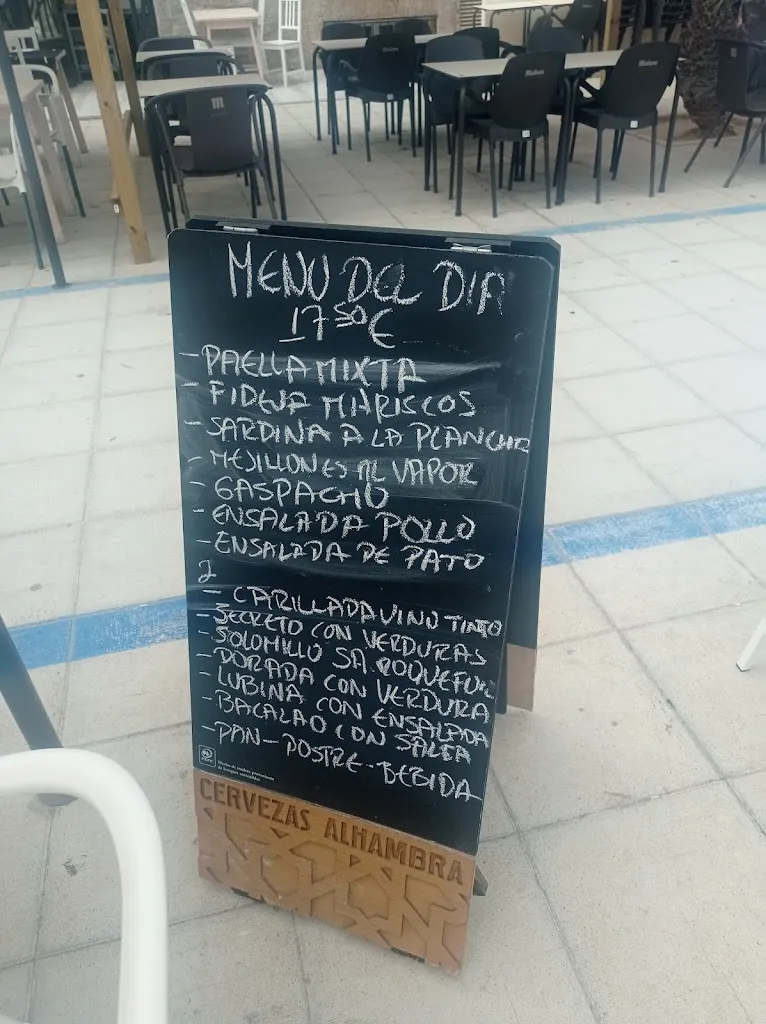 MENU DEL DIA
17 50 €
- PAELLA MIXTA
- FIDEUA MARISCOS
- SARDINA A LA PLANCHA
- MEJILLONES AL VAPOR
- GASPACHO
- ENSALADA POLLO
- ENSALADA DE PATO
2
- CARILLADA VINO TINTO
- SECRETO CON VERDURAS
- SOLOMILLO SA. ROQUEFOR
- DORADA CON VERDURA
- LUBINA CON ENSALADA
- BACALAO CON SALSA
- PAN - POSTRE - BEBIDA
CERVEZAS ALHAMBRA